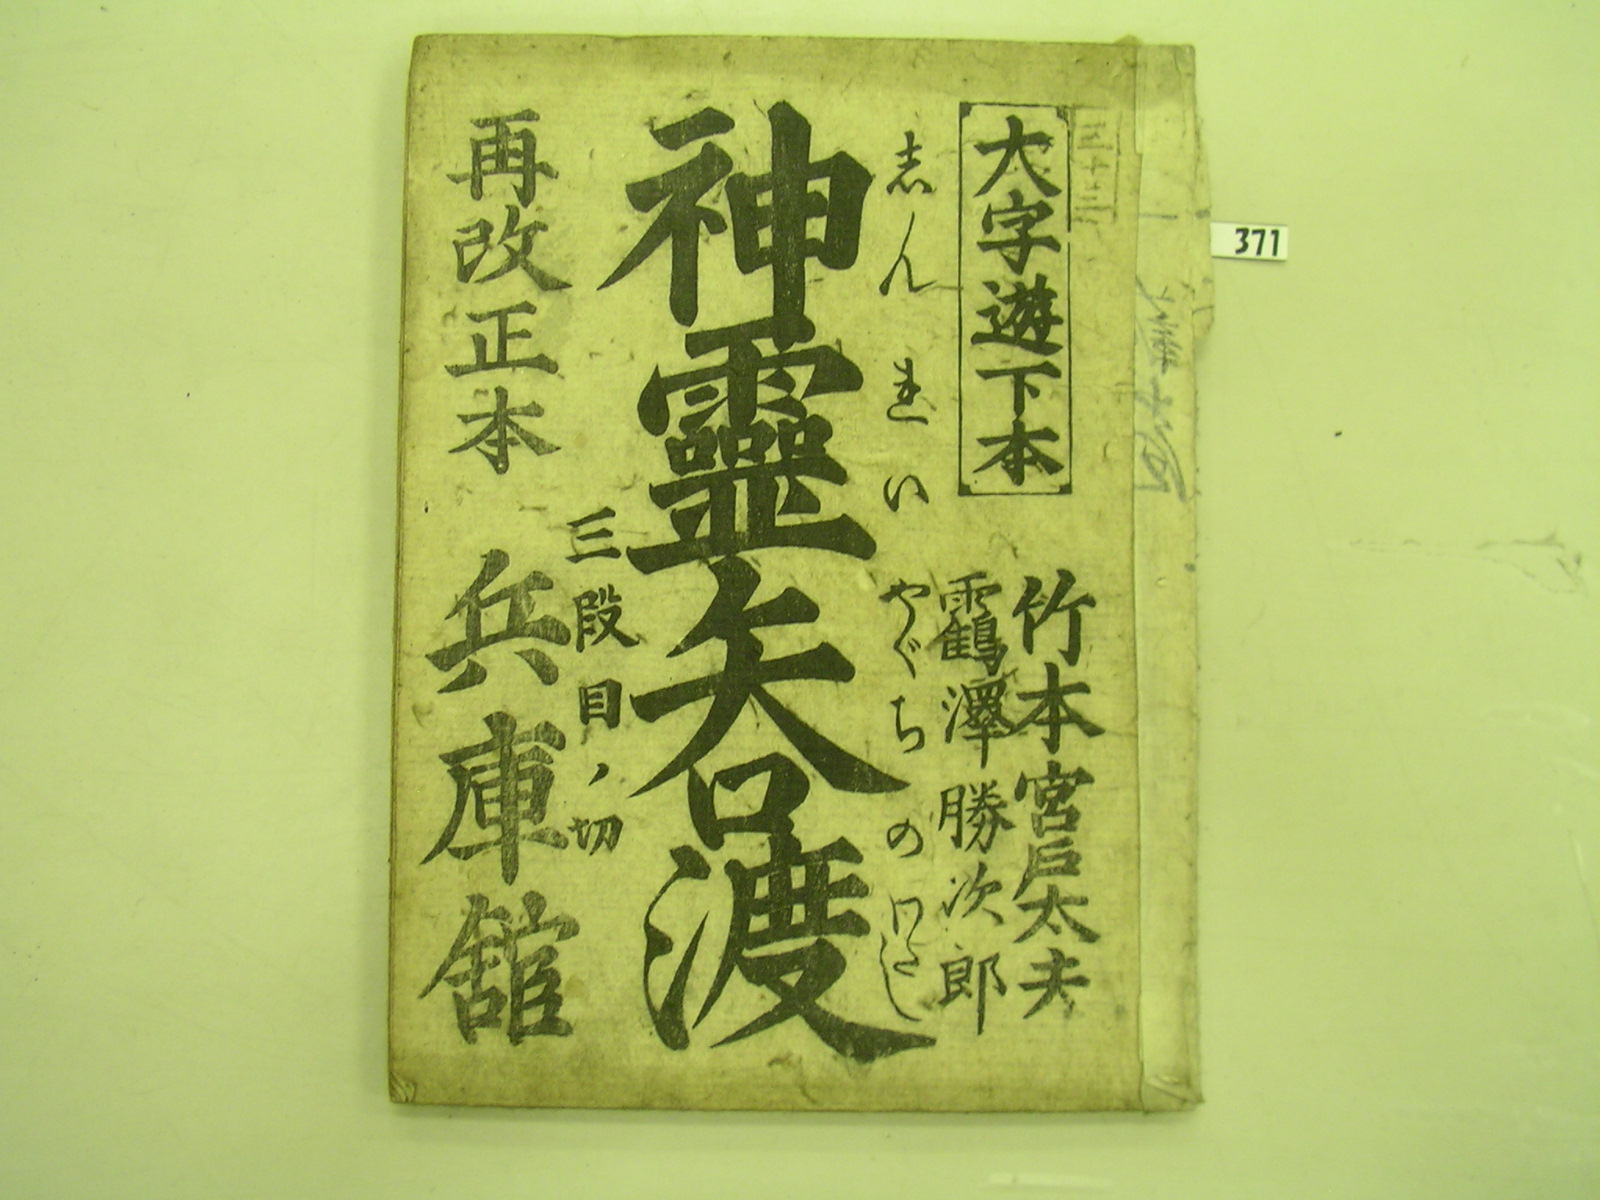 371
大字遊下本
竹本宮戸太夫
鶴澤勝次郎
志んれいやぐちのわたし
神靈矢口渡
三段目ノ切
再改正本
兵庫舘